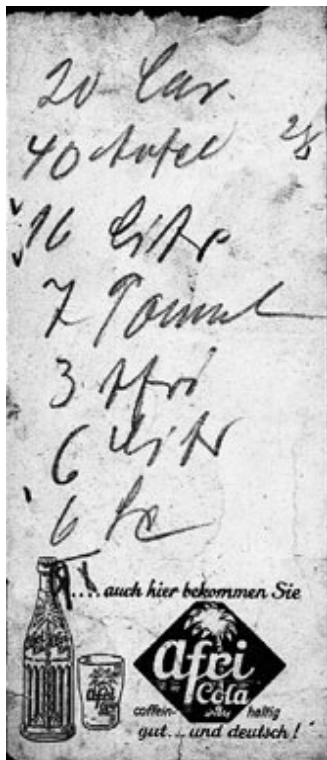 20 Car.
40 Apfel 28
16 Litr
7 Pommel
3 Afri
6 Litr
6
....auch hier bekommen Sie
afri
Cola
coffein- haltig
gut... und deutsch!